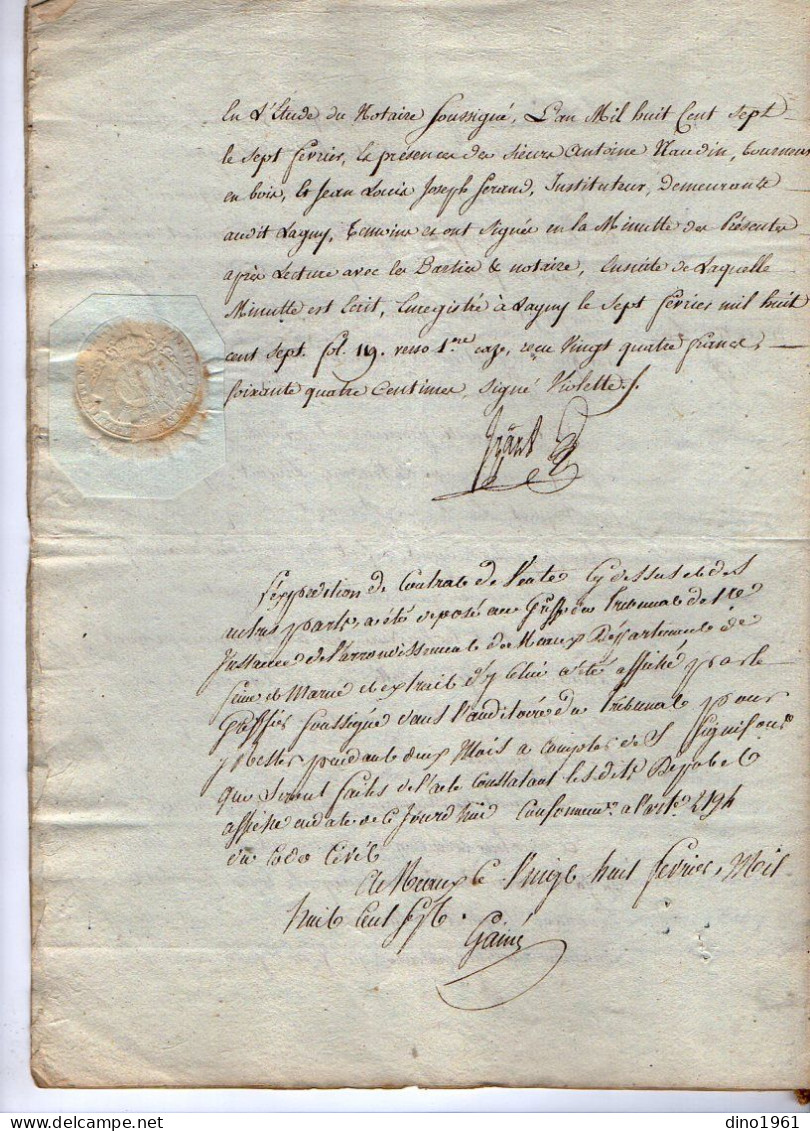 En L'Étude du Notaire soussigné, L'an Mil huit Cent Sept
le sept fevrier, En presence des sieurs Antoine Naudin, tourneur
en bois, Et Jean Louis Joseph Gerand, Instituteur, Demeurants
audit Lagny, Temoins et ont Signés en la Minutte des Présentes
après Lecture avec les Parties & notaire, Ensuite de Laquelle
Minutte est Ecrit, Enregistré à Lagny le sept fevrier mil huit
cent sept. fol. 119. verso 1.re caze, reçu Vingt quatre francs,
soixante quatre Centimes, signé Violette.
L'expedition de Contrat de Vente Cy dessus et des
autres parts, a été deposé au Greffe du Tribunal de 1re
Instance de l'arrondissement de Meaux Département de
Seine et Marne et extrait d'y celui a été affiché par le
Greffier soussigné dans l'auditoire du Tribunal pour
y rester pendant deux Mois a compter des Significons
que seront faites de l'acte Constatant lesdits Depot et
affiche en date de ce Jourd'hui Conformemt. a l'arte. 2194
du Code Civil
A Meaux le Vingt huit fevrier, Mil
huit Cent sept.
dino1961